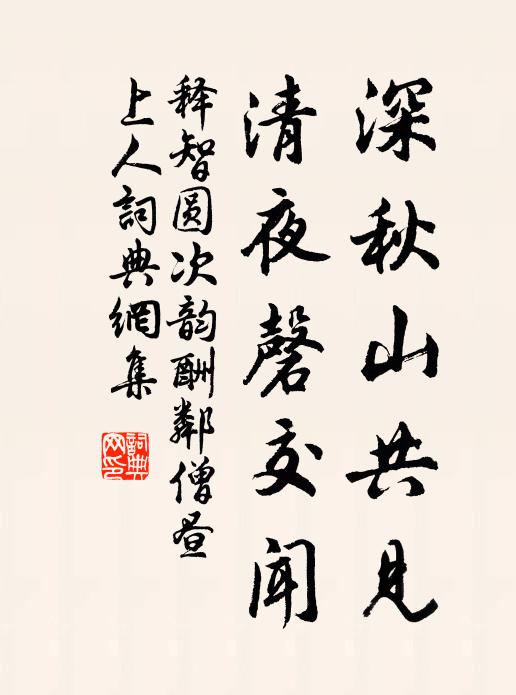 深秋山共见
清夜磬交闻
释智圆次韵酬鄰僧昼
上人詞典網集
詞典
网印